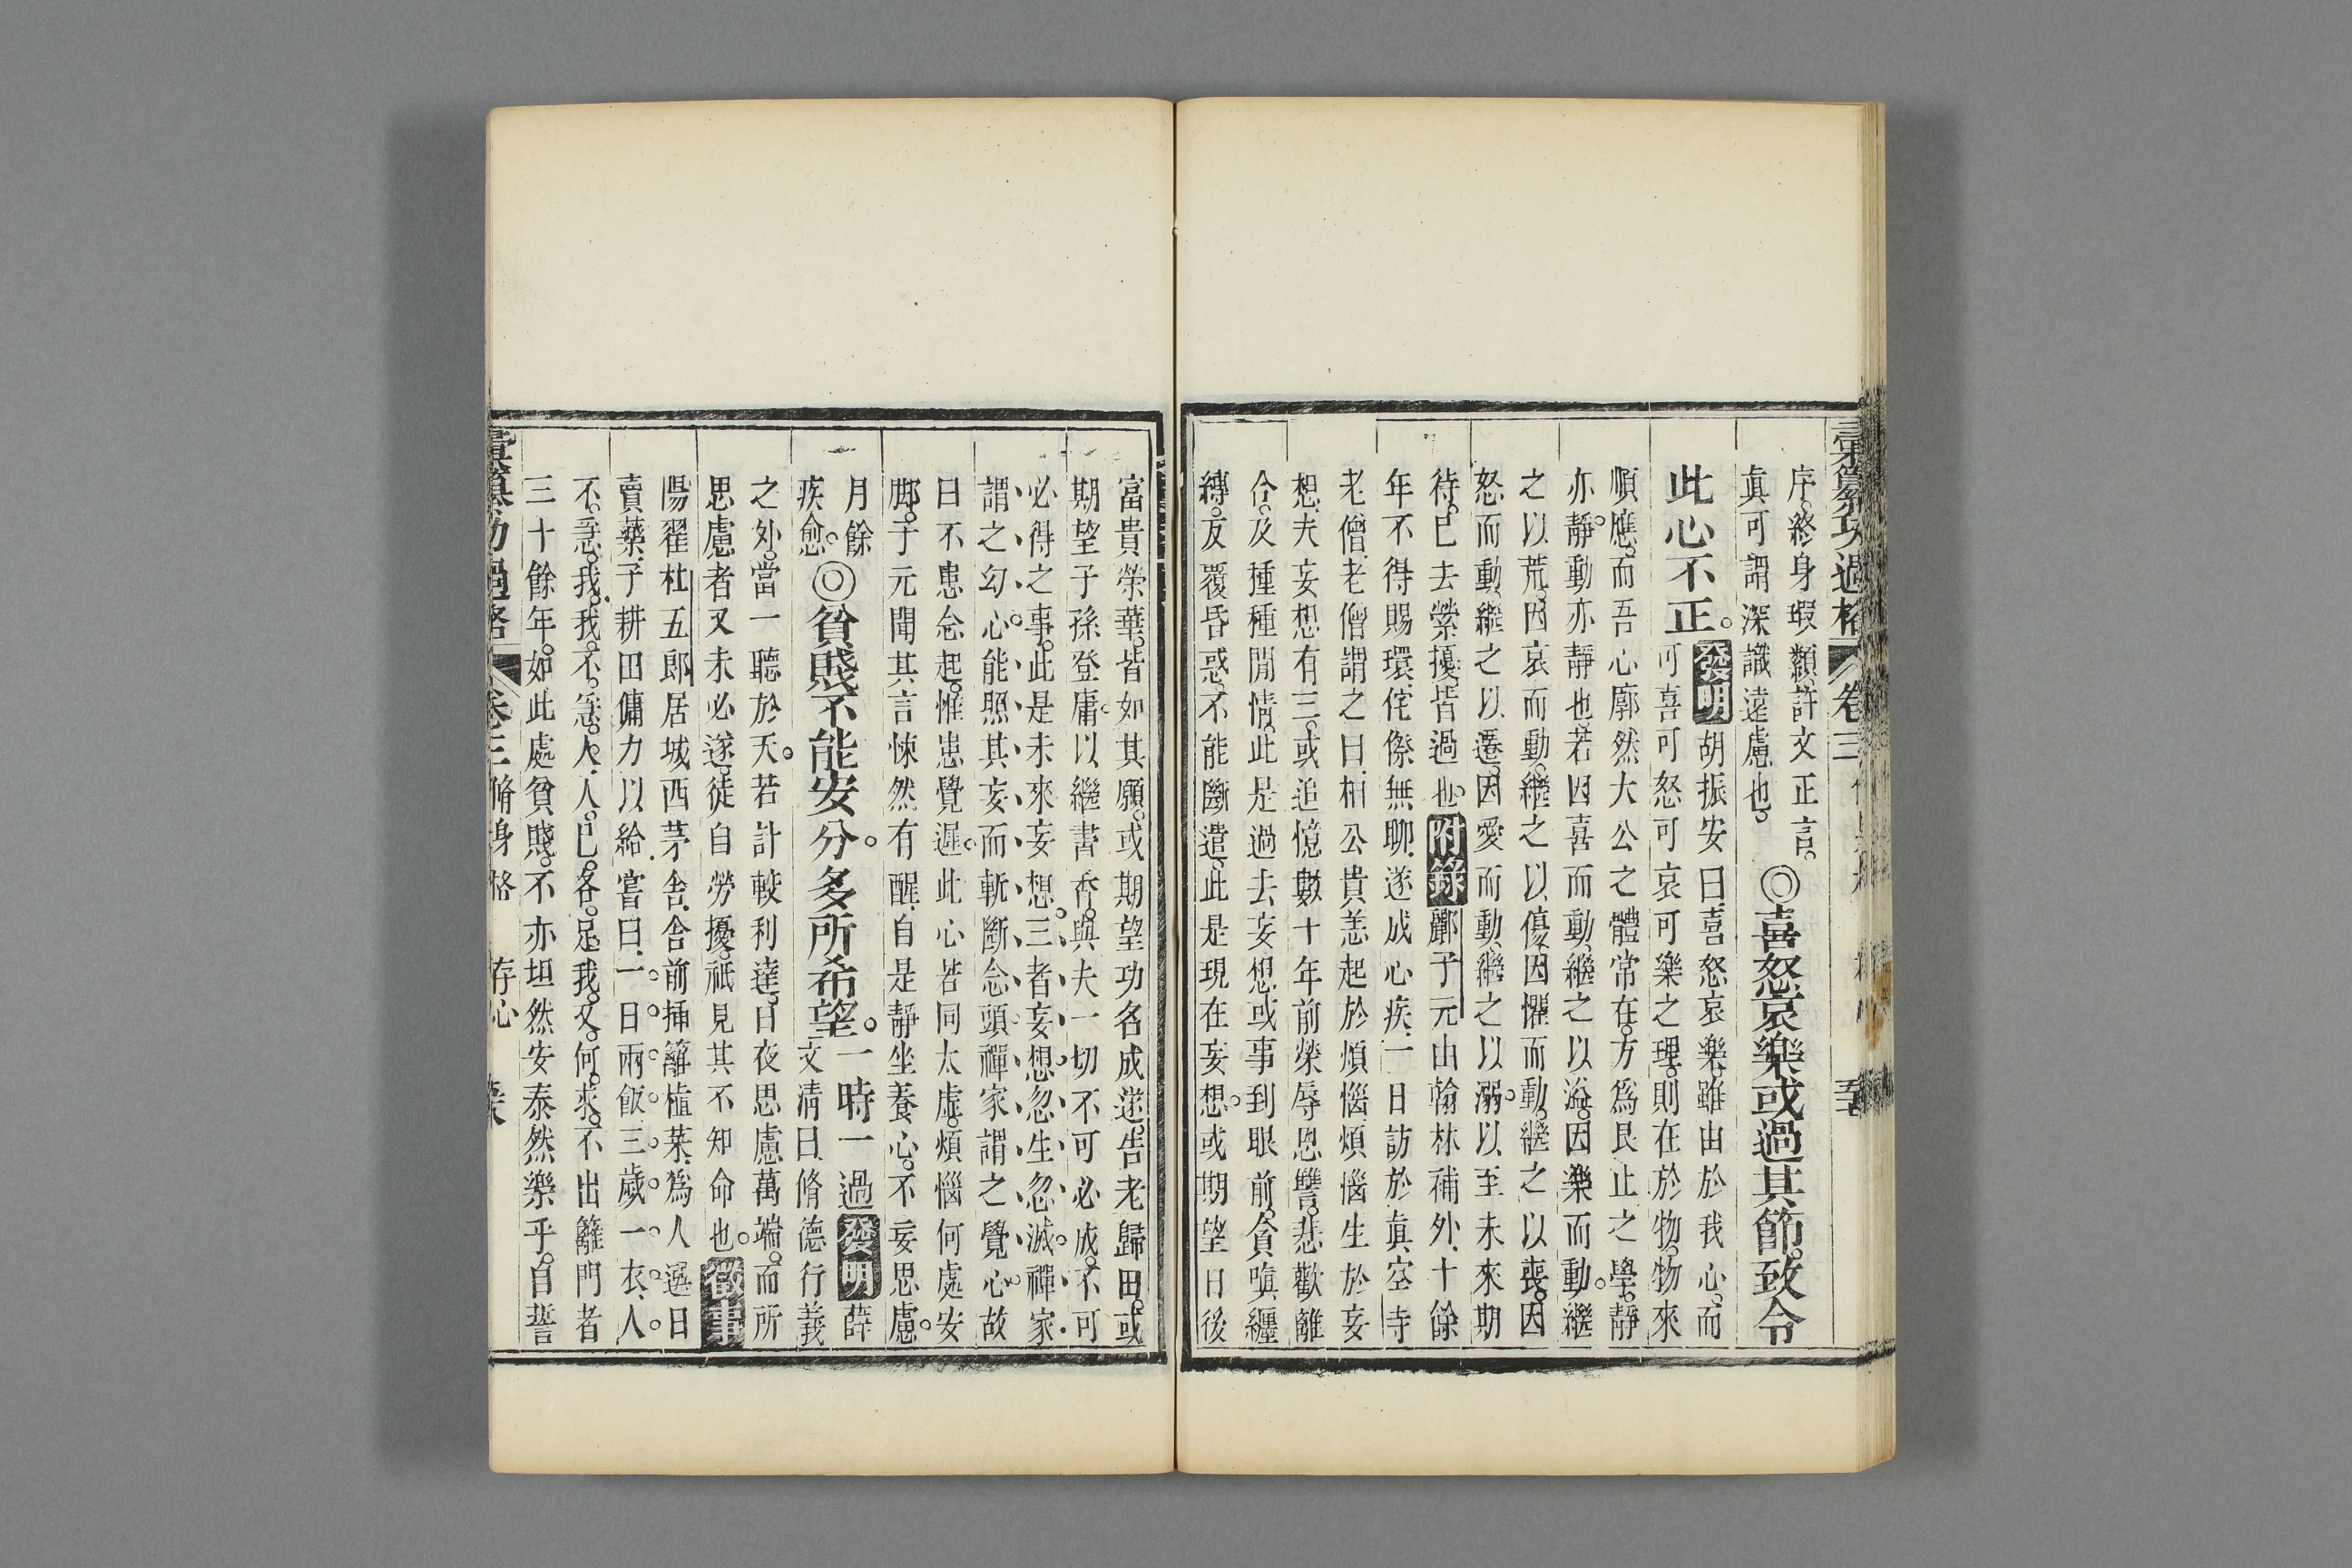 彙纂功過格 卷三
序。終身瑕纇。許文正言。
眞可謂深識遠慮也。◎喜怒哀樂或過其節。致令
此心不正。發明胡振安曰。喜怒哀樂。雖由於我心。而
可喜可怒可哀可樂之理。則在於物。物來
順應。而吾心廓然大公之體常在。方爲艮止之學。靜
亦靜。動亦靜也。若因喜而動。繼之以溢。因樂而動。繼
之以荒。因哀而動。繼之以傷。因懼而動。繼之以喪。因
怒而動。繼之以遷。因愛而動。繼之以溺。以至未來期
待。已去縈擾。皆過也。附錄鄺子元由翰林補外。十餘
年不得賜環。侘傺無聊。遂成心疾。一日訪於眞空寺
老僧。老僧謂之曰。相公貴恙起於煩惱。煩惱生於妄
想。夫妄想有三。或追憶數十年前榮辱恩讐。悲歡離
合。及種種閒情。此是過去妄想。或事到眼前。貪嗔纏
縛。反覆昏惑。不能斷遣。此是現在妄想。或期望日後
富貴榮華。皆如其願。或期望功名成遂。告老歸田。或
期望子孫登庸。以繼書香。與夫一切不可必成。不可
必得之事。此是未來妄想。三者妄想。忽生忽滅。禪家
謂之幻心。能照其妄而斬斷念頭。禪家謂之覺心。故
曰不患念起。惟患覺遲。此心若同太虛。煩惱何處安
脚。子元聞其言。悚然有醒。自是靜坐養心。不妄思慮。
月餘
疾愈。◎貧賤不能安分。多所希望。一時一過 發明薛
文清曰。脩德行義
之外。當一聽於天。若計較利達。日夜思慮萬端。而所
思慮者又未必遂。徒自勞擾。祇見其不知命也。徵事
陽翟杜五郎居城西茅舍。舍前插籬植菜。爲人選日
賣藥。子耕田傭力以給。嘗曰。一日兩飯。三歲一衣。人
不急。我我不急。人人已各足。我又何求。不出籬門者
三十餘年。如此處貧賤。不亦坦然安泰然樂乎。自誓
彙纂功過格 卷三 脩身格 存心